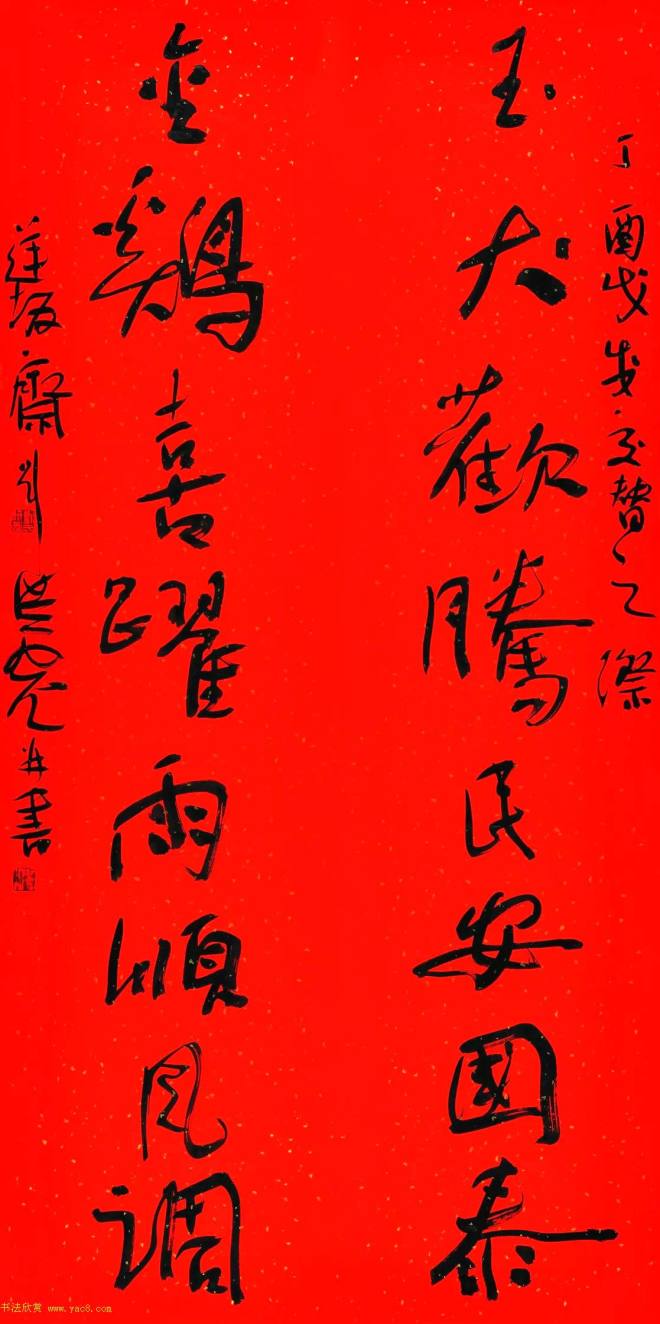 丁酉戊戌交替之際
玉犬歡騰民安國泰
金鷄喜躍雨順風調
齋 并書
书法欣赏 www.yac8.com